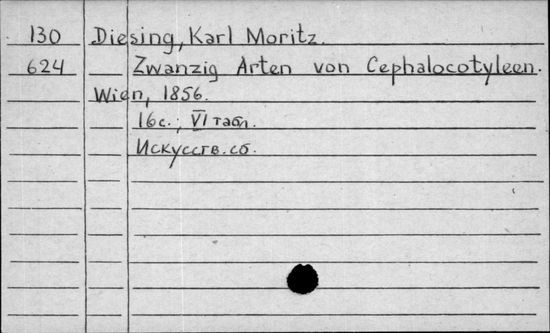 130 Diesing, Karl Moritz.
624 Zwanzig Arten von Cephalocotyleen.
Wien, 1856.
16 с.; VI табл.
Искусств. сб.